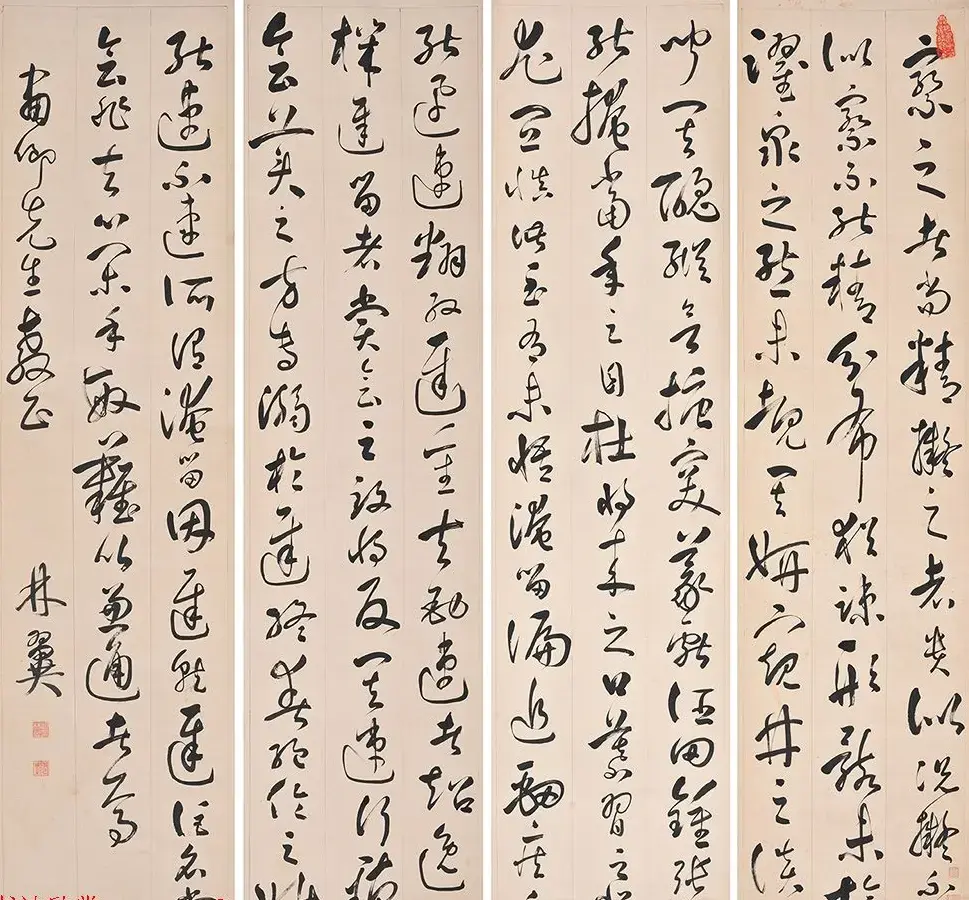 察之者尚精擬之者貴似況擬不
似察不能精分布猶疏形骸未檢
躍泉之態未睹其妍窺井之談
聞其醜縱欲唐突羲獻誣罔鍾張
能掩當年之目杜將來之口慕習之輩
尤宜慎諸至有未悟淹留偏追勁疾
能迅速翻效遲重夫勁速者超逸
機遲留者賞會之致將反其速行臻
會美之方專溺於遲終爽絕倫之妙
能速不速所謂淹留因遲就遲詎名賞
會非夫心閑手敏難以兼通者焉
卿先生教正
林翼